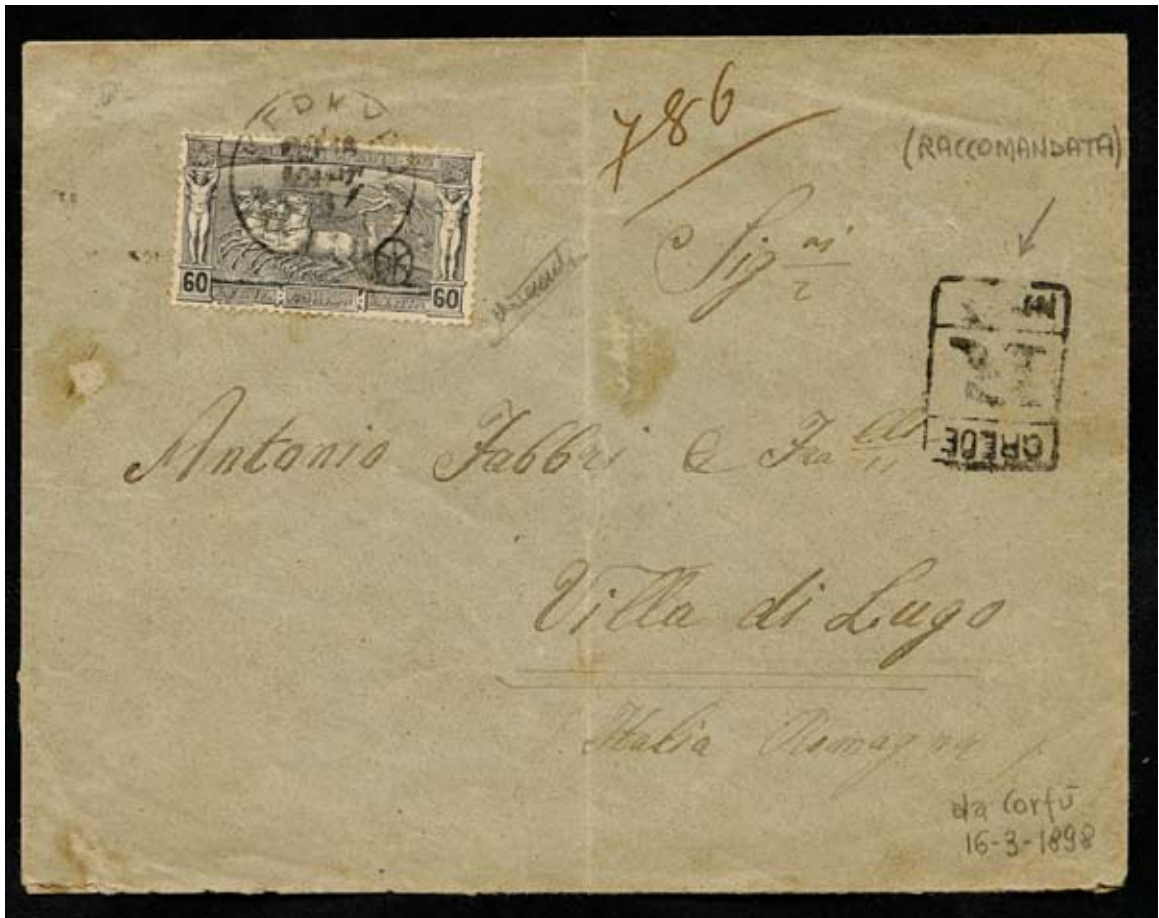 786
(RACCOMANDATA)
Sig ri
60 60
GRECE
Antonio Fabbri & Fra lli
Villa di Lugo
Italia Romagna
da Corfù
16-3-1898